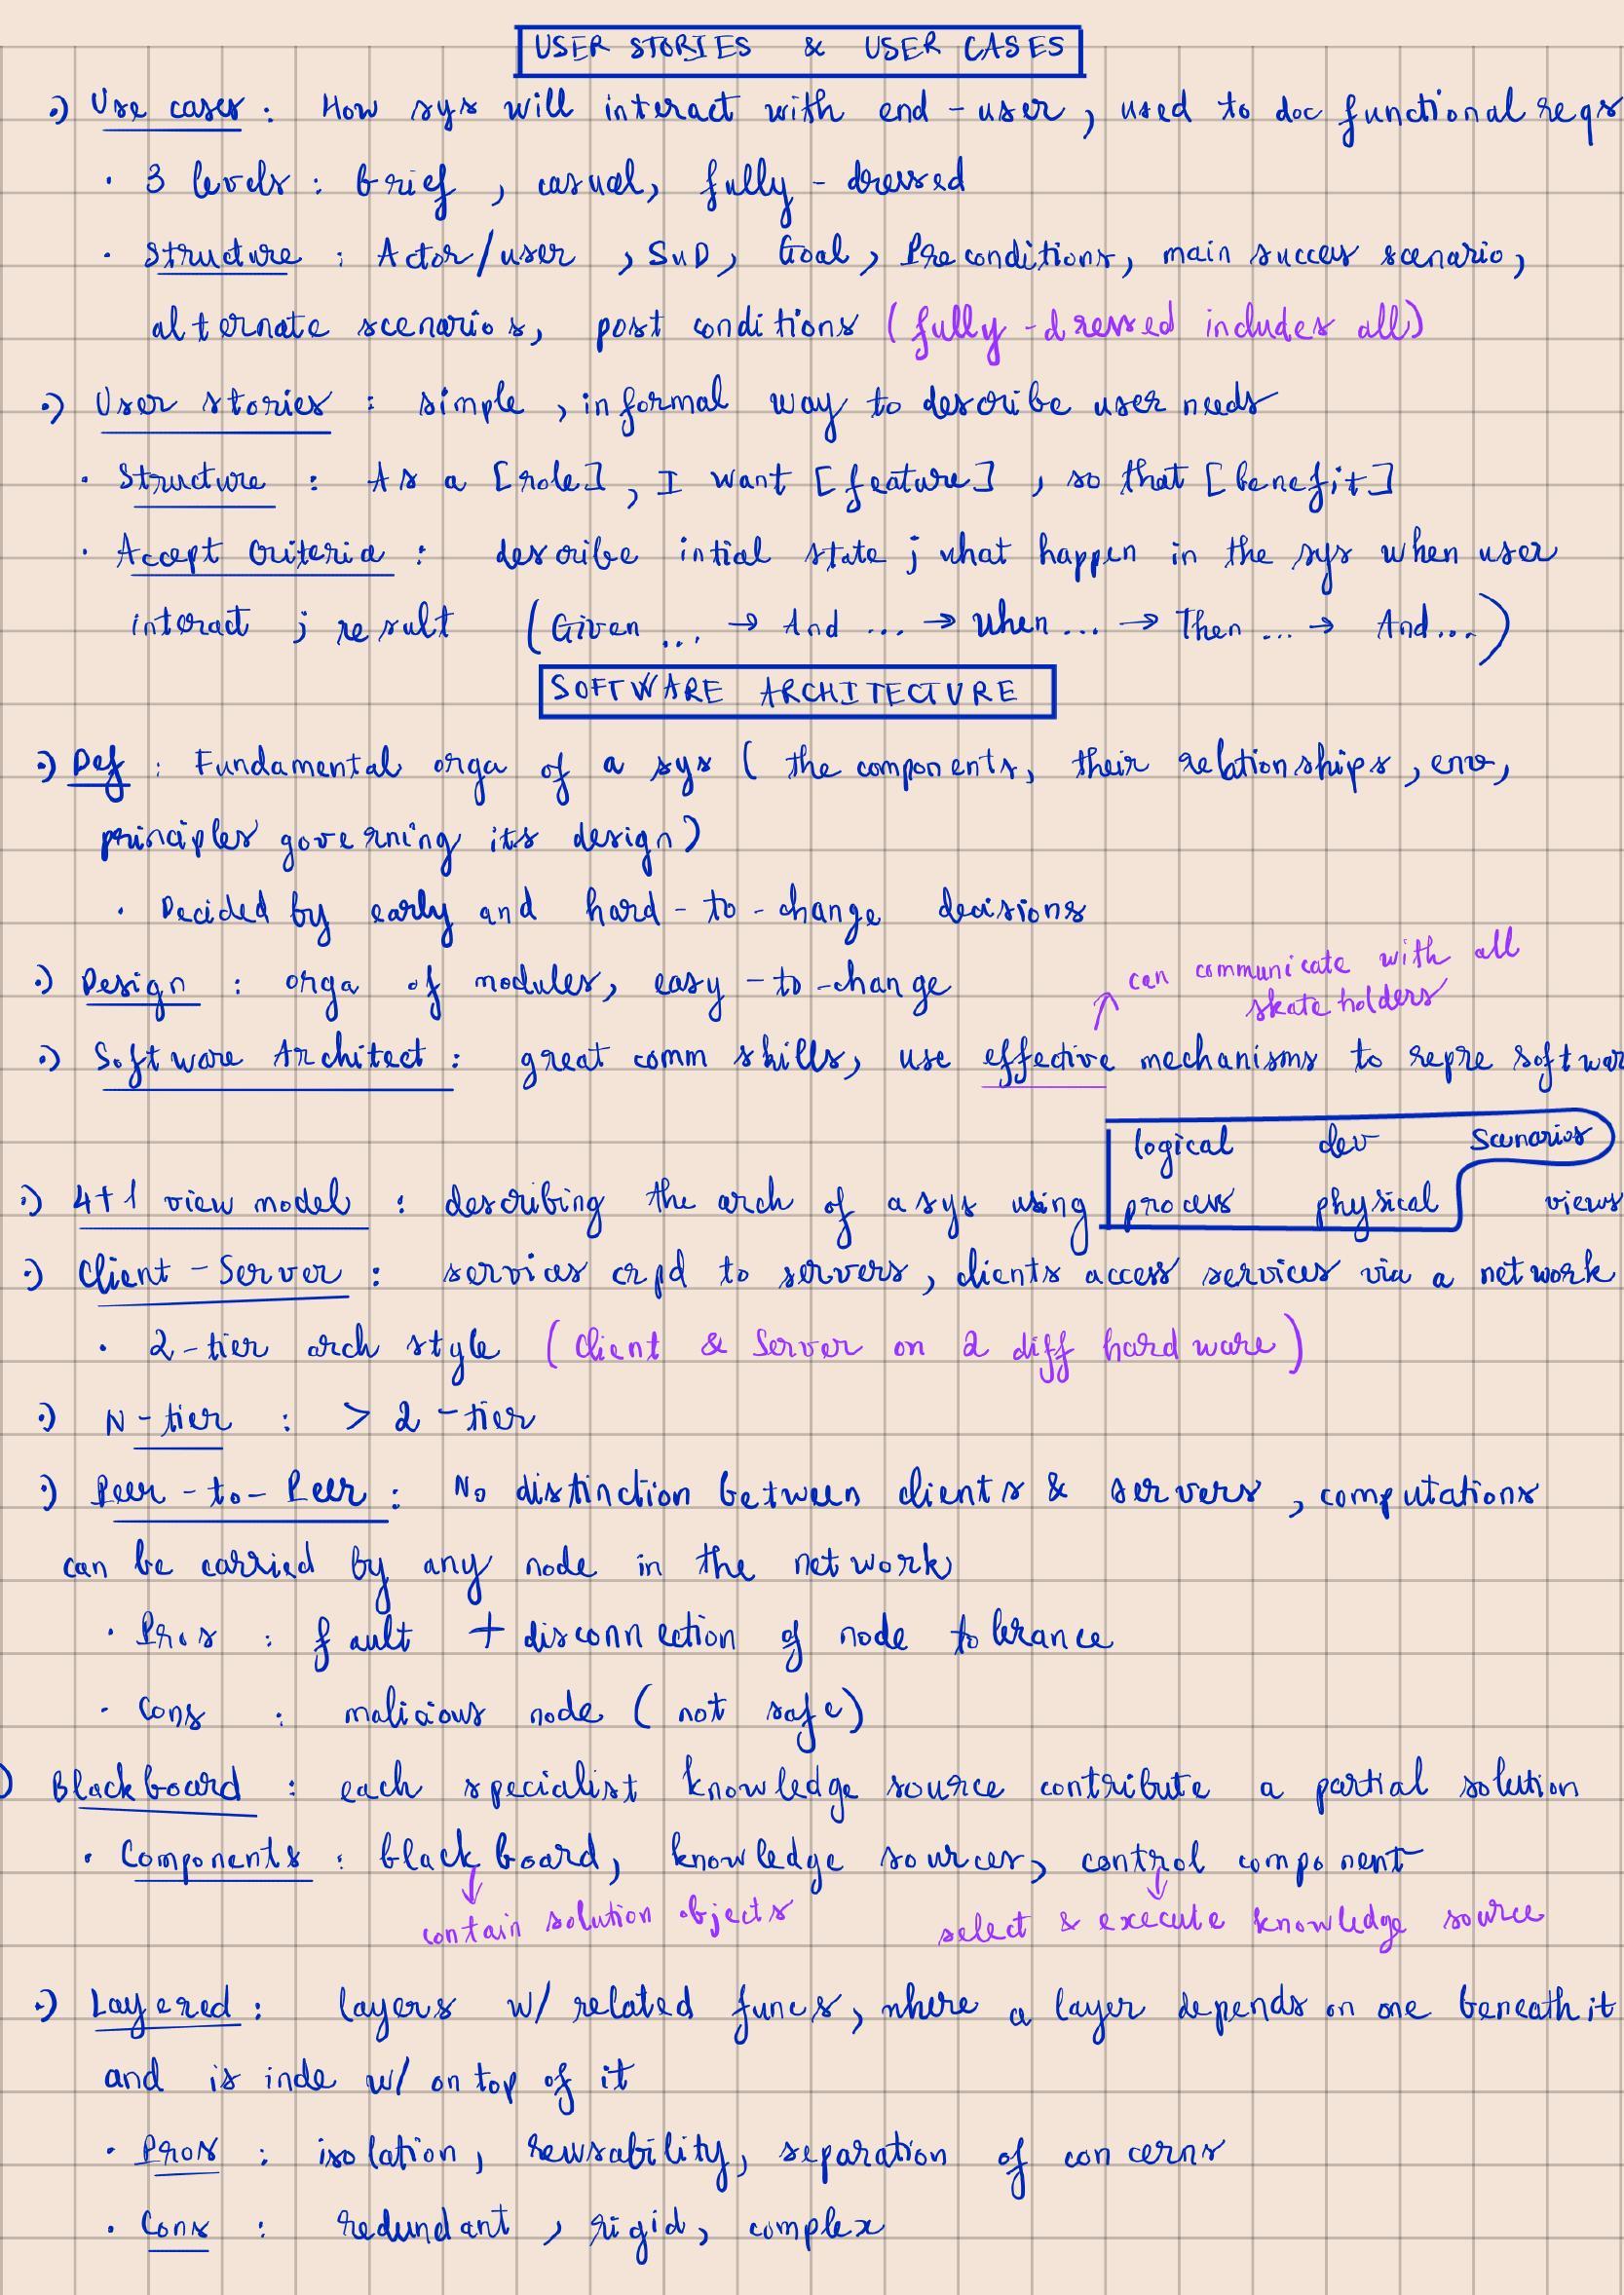 USER STORIES & USER CASES
Use cases : How sys will interact with end-user, used to doc functional reqs
· 3 levels : brief, casual, fully-dressed
· Structure : Actor/user, SuD, Goal, Preconditions, main succes scenario,
alternate scenarios, post conditions (fully-dressed includes all)
User stories : simple, informal way to describe user needs
· Structure : As a [role], I want [feature], so that [benefit]
· Accept Criteria : describe intial state ; what happen in the sys when user
interact ; result (Given ... → And ... → When ... → Then ... → And ...)
SOFTWARE ARCHITECTURE
Def : Fundamental orga of a sys (the components, their relationships, env,
principles governing its design)
· Decided by early and hard-to-change decisions
Design : orga of modules, easy-to-change
can communicate with all
skateholders
Software Architect : great comm skills, use effective mechanisms to repre softwar
logical dev scenarios
4+1 view model : describing the arch of a sys using process physical views
Client-Server : services crpd to servers, clients access services via a network
· 2-tier arch style (Client & Server on 2 diff hardware)
N-tier : > 2-tier
Peer-to-Peer : No distinction between clients & servers, computations
can be carried by any node in the network
· Pros : fault + disconnection of node tolerance
· Cons : malicious node (not safe)
Blackboard : each specialist knowledge source contribute a partial solution
· Components : blackboard, knowledge sources, control component
contain solution objects select & execute knowledge source
Layered : layers w/ related funcs, where a layer depends on one beneath it
and is inde w/ on top of it
· Pros : isolation, reusability, separation of concerns
· Cons : redundant, rigid, complex